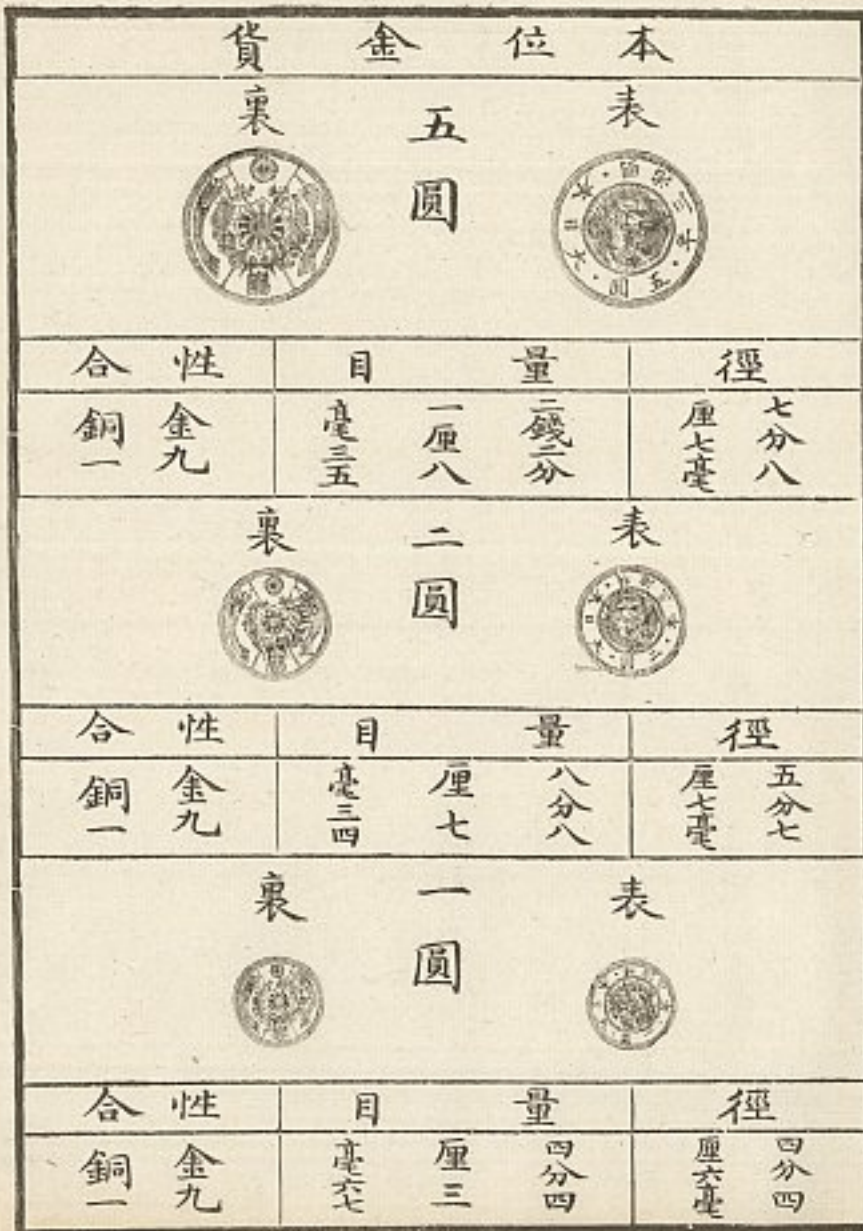 本位金貨
表
五圓
裏
明治三年・五圓・大日本・
徑
量目
性合
七分八
厘七毫
二錢二分
一厘八
毫三五
金九
銅一
表
二圓
裏
徑
量目
性合
五分七
厘七毫
八分八
厘七
毫三四
金九
銅一
表
一圓
裏
徑
量目
性合
四分四
厘六毫
四分四
厘三
毫六七
金九
銅一